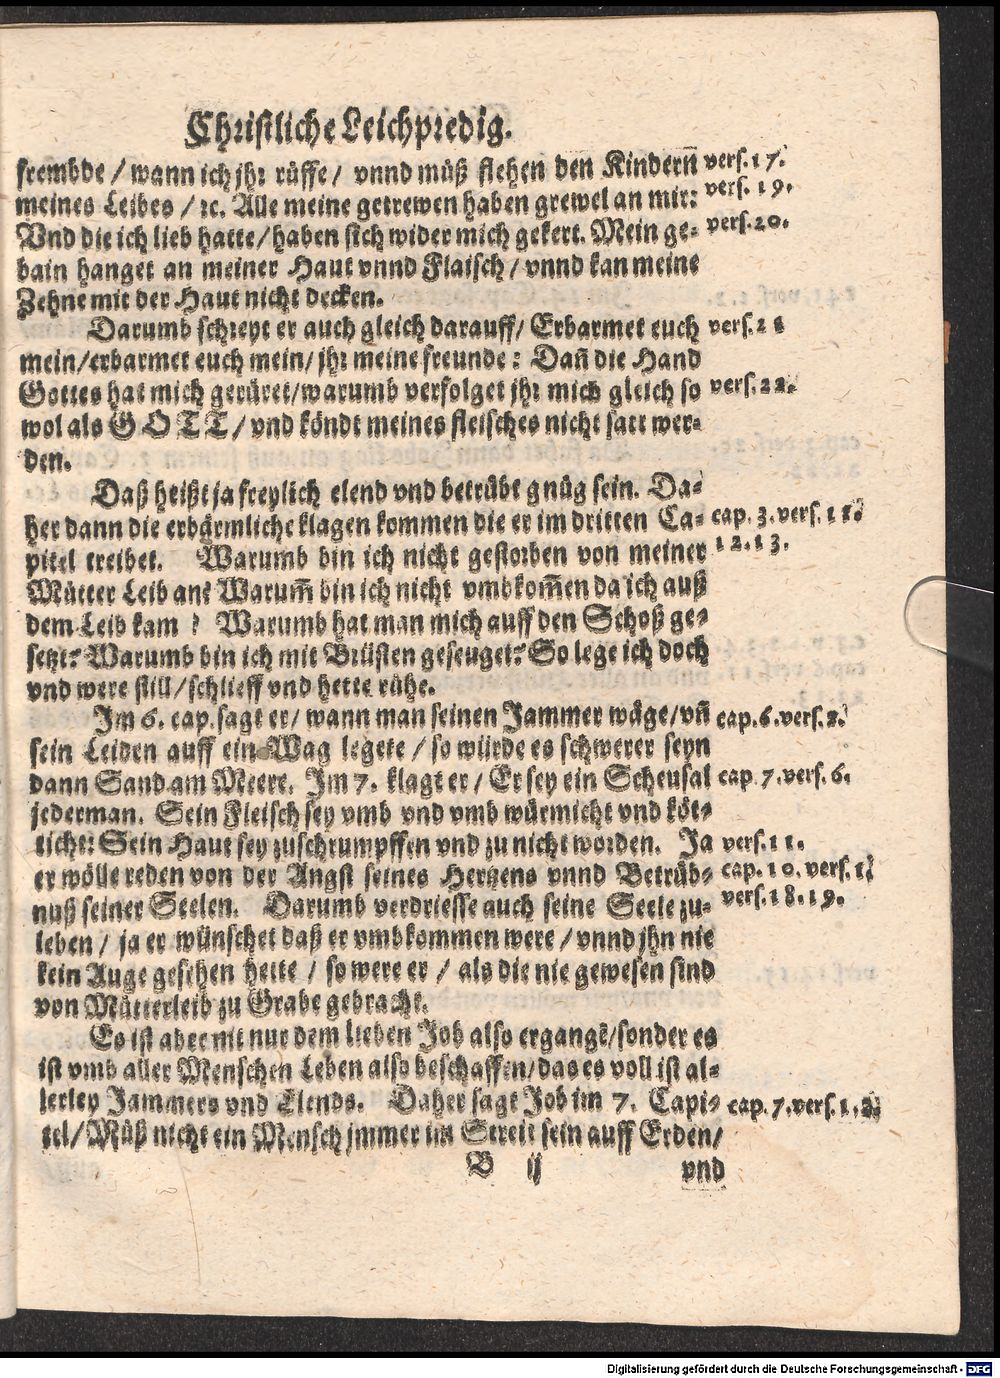 Christliche Leichpredig.
frembde / wann ich jhr rüffe / vnnd müß flehen den Kindern̄ vers. 17.
meines Leibes / ꝛc. Alle meine getrewen haben grewel an mir: vers. 19.
Vnd die ich lieb hatte / haben sich wider mich gekert. Mein ge- vers. 20.
bain hanget an meiner Haut vnnd Flaisch / vnnd kan meine
Zehne mit der Haut nicht decken.
Darumb schreyt er auch gleich darauff / Erbarmet euch vers. 21
mein / erbarmet euch mein / jhr meine freunde: Dan̄ die Hand
Gottes hat mich gerüret / warumb verfolget jhr mich gleich so vers. 22.
wol als GOTT / vnd köndt meines fleisches nicht satt wer-
den.
Daß heißt ja freylich elend vnd betrübt gnüg sein. Da-
her dann die erbärmliche klagen kommen die er im dritten Ca- cap. 3. vers. 11.
pitel treibet. Warumb bin ich nicht gestorben von meiner 12. 13.
Mütter Leib an? Warum̄ bin ich nicht vmbkom̄en da ich auß
dem Leib kam? Warumb hat man mich auff den Schoß ge-
setzt? Warumb bin ich mit Brüsten geseuget? So lege ich doch
vnd were still / schlieff vnd hette rühe.
Im 6. cap. sagt er / wann man seinen Jammer wäge / vn̄ cap. 6. vers. 2.
sein Leiden auff ein Wag legete / so würde es schwerer seyn
dann Sand am Meere. Im 7. klagt er / Er sey ein Scheusal cap. 7. vers. 6.
jederman. Sein Fleisch sey vmb vnd vmb würmicht vnd köt-
ticht: Sein Haut sey zuschrumpffen vnd zu nicht worden. Ja vers. 11.
er wölle reden von der Angst seines Hertzens vnnd Betrüb- cap. 10. vers. 1.
nuß seiner Seelen. Darumb verdriesse auch seine Seele zu- vers. 18. 19.
leben / ja er wünschet daß er vmbkommen were / vnnd jhn nie
kein Auge gesehen hette / so were er / als die nie gewesen sind
von Mütterleib zu Grabe gebracht.
Es ist aber nit nur dem lieben Job also ergangē / sonder es
ist vmb aller Menschen Leben also beschaffen / das es voll ist al-
lerley Jammers vnd Elends. Daher sagt Job im 7. Capi- cap. 7. vers. 1. 2.
tel / Müß nicht ein Mensch jmmer im Streit sein auff Erden /
B ij vnd
Digitalisierung gefördert durch die Deutsche Forschungsgemeinschaft - DFG